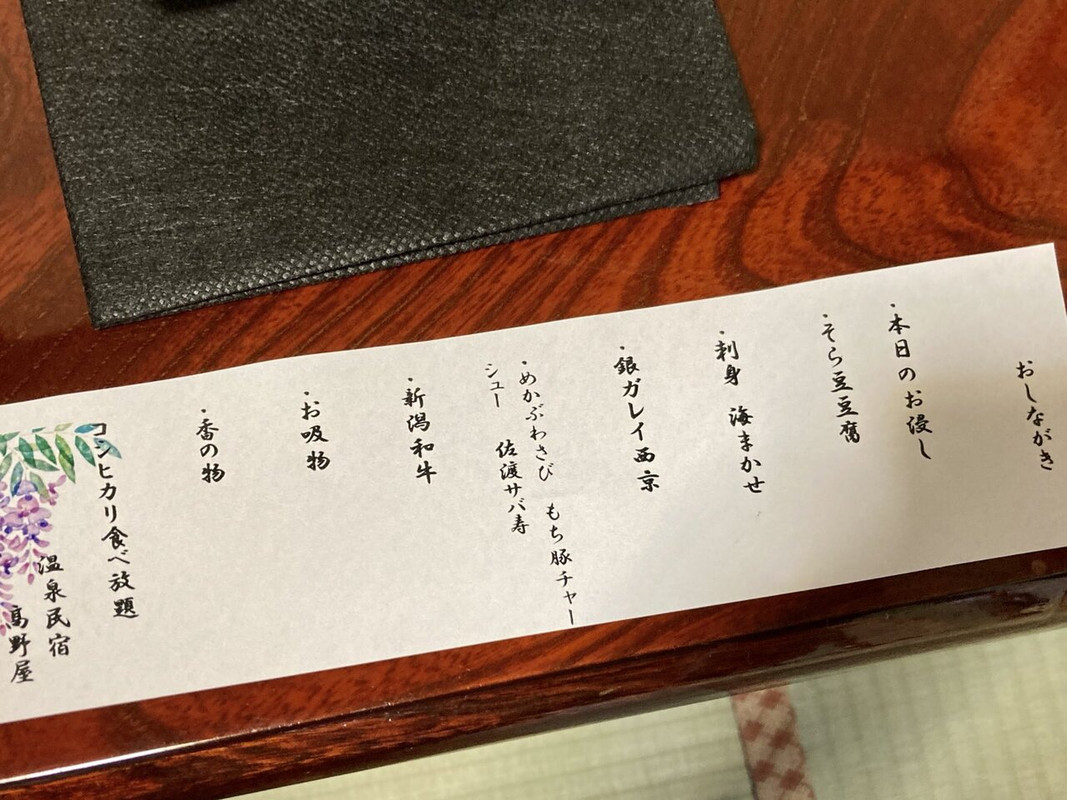 おしながき
・本日のお浸し
・そら豆豆腐
・刺身　海まかせ
・銀ガレイ西京
・めかぶわさび　もち豚チャー
シュー　佐渡サバ寿
・新潟和牛
・お吸物
・香の物
コシヒカリ食べ放題
温泉民宿
高野屋